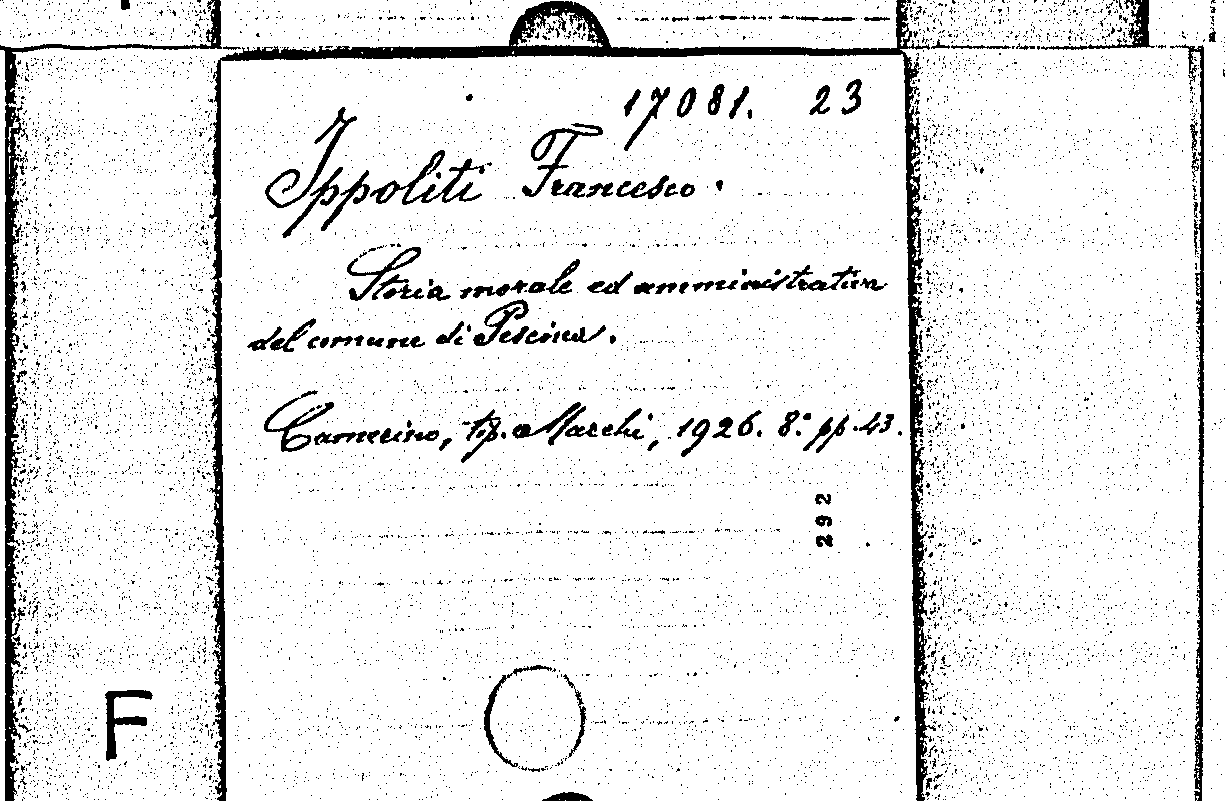 17081. 23
Ippoliti Francesco.
Storia morale ed amministrativa
del comune di Pescina.
Camerino, tip. Marchi, 1926. 8.° pp. 43.
292
F